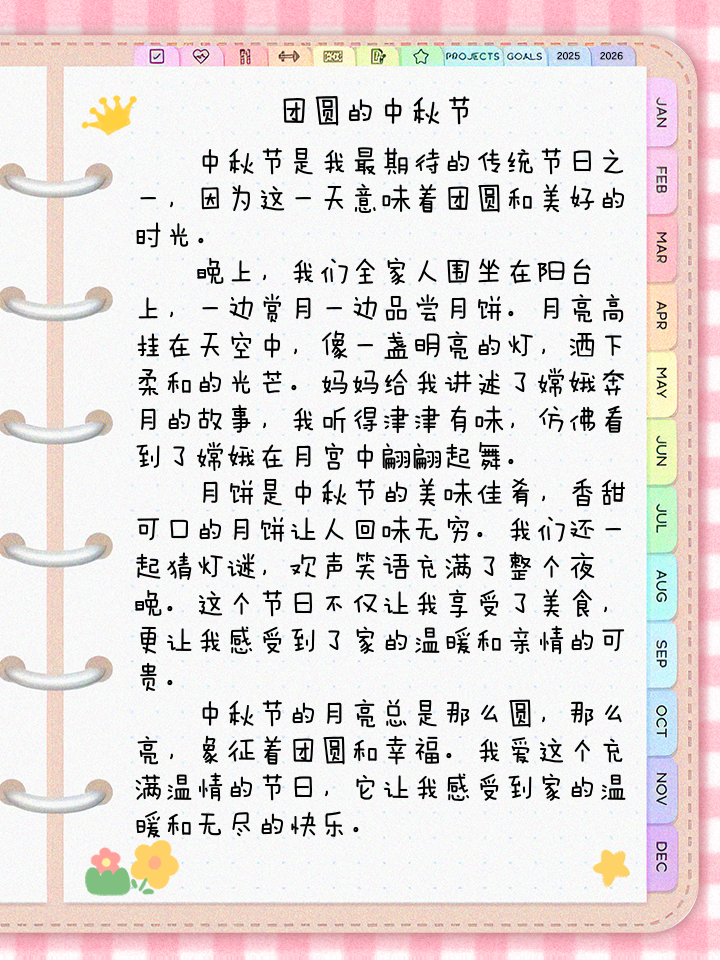 PROJECTS GOALS 2025 2026
团圆的中秋节
中秋节是我最期待的传统节日之
一，因为这一天意味着团圆和美好的
时光。
晚上，我们全家人围坐在阳台
上，一边赏月一边品尝月饼。月亮高
挂在天空中，像一盏明亮的灯，洒下
柔和的光芒。妈妈给我讲述了嫦娥奔
月的故事，我听得津津有味，仿佛看
到了嫦娥在月宫中翩翩起舞。
月饼是中秋节的美味佳肴，香甜
可口的月饼让人回味无穷。我们还一
起猜灯谜，欢声笑语充满了整个夜
晚。这个节日不仅让我享受了美食，
更让我感受到了家的温暖和亲情的可
贵。
中秋节的月亮总是那么圆，那么
亮，象征着团圆和幸福。我爱这个充
满温情的节日，它让我感受到家的温
暖和无尽的快乐。
JAN
FEB
MAR
APR
MAY
JUN
JUL
AUG
SEP
OCT
NOV
DEC